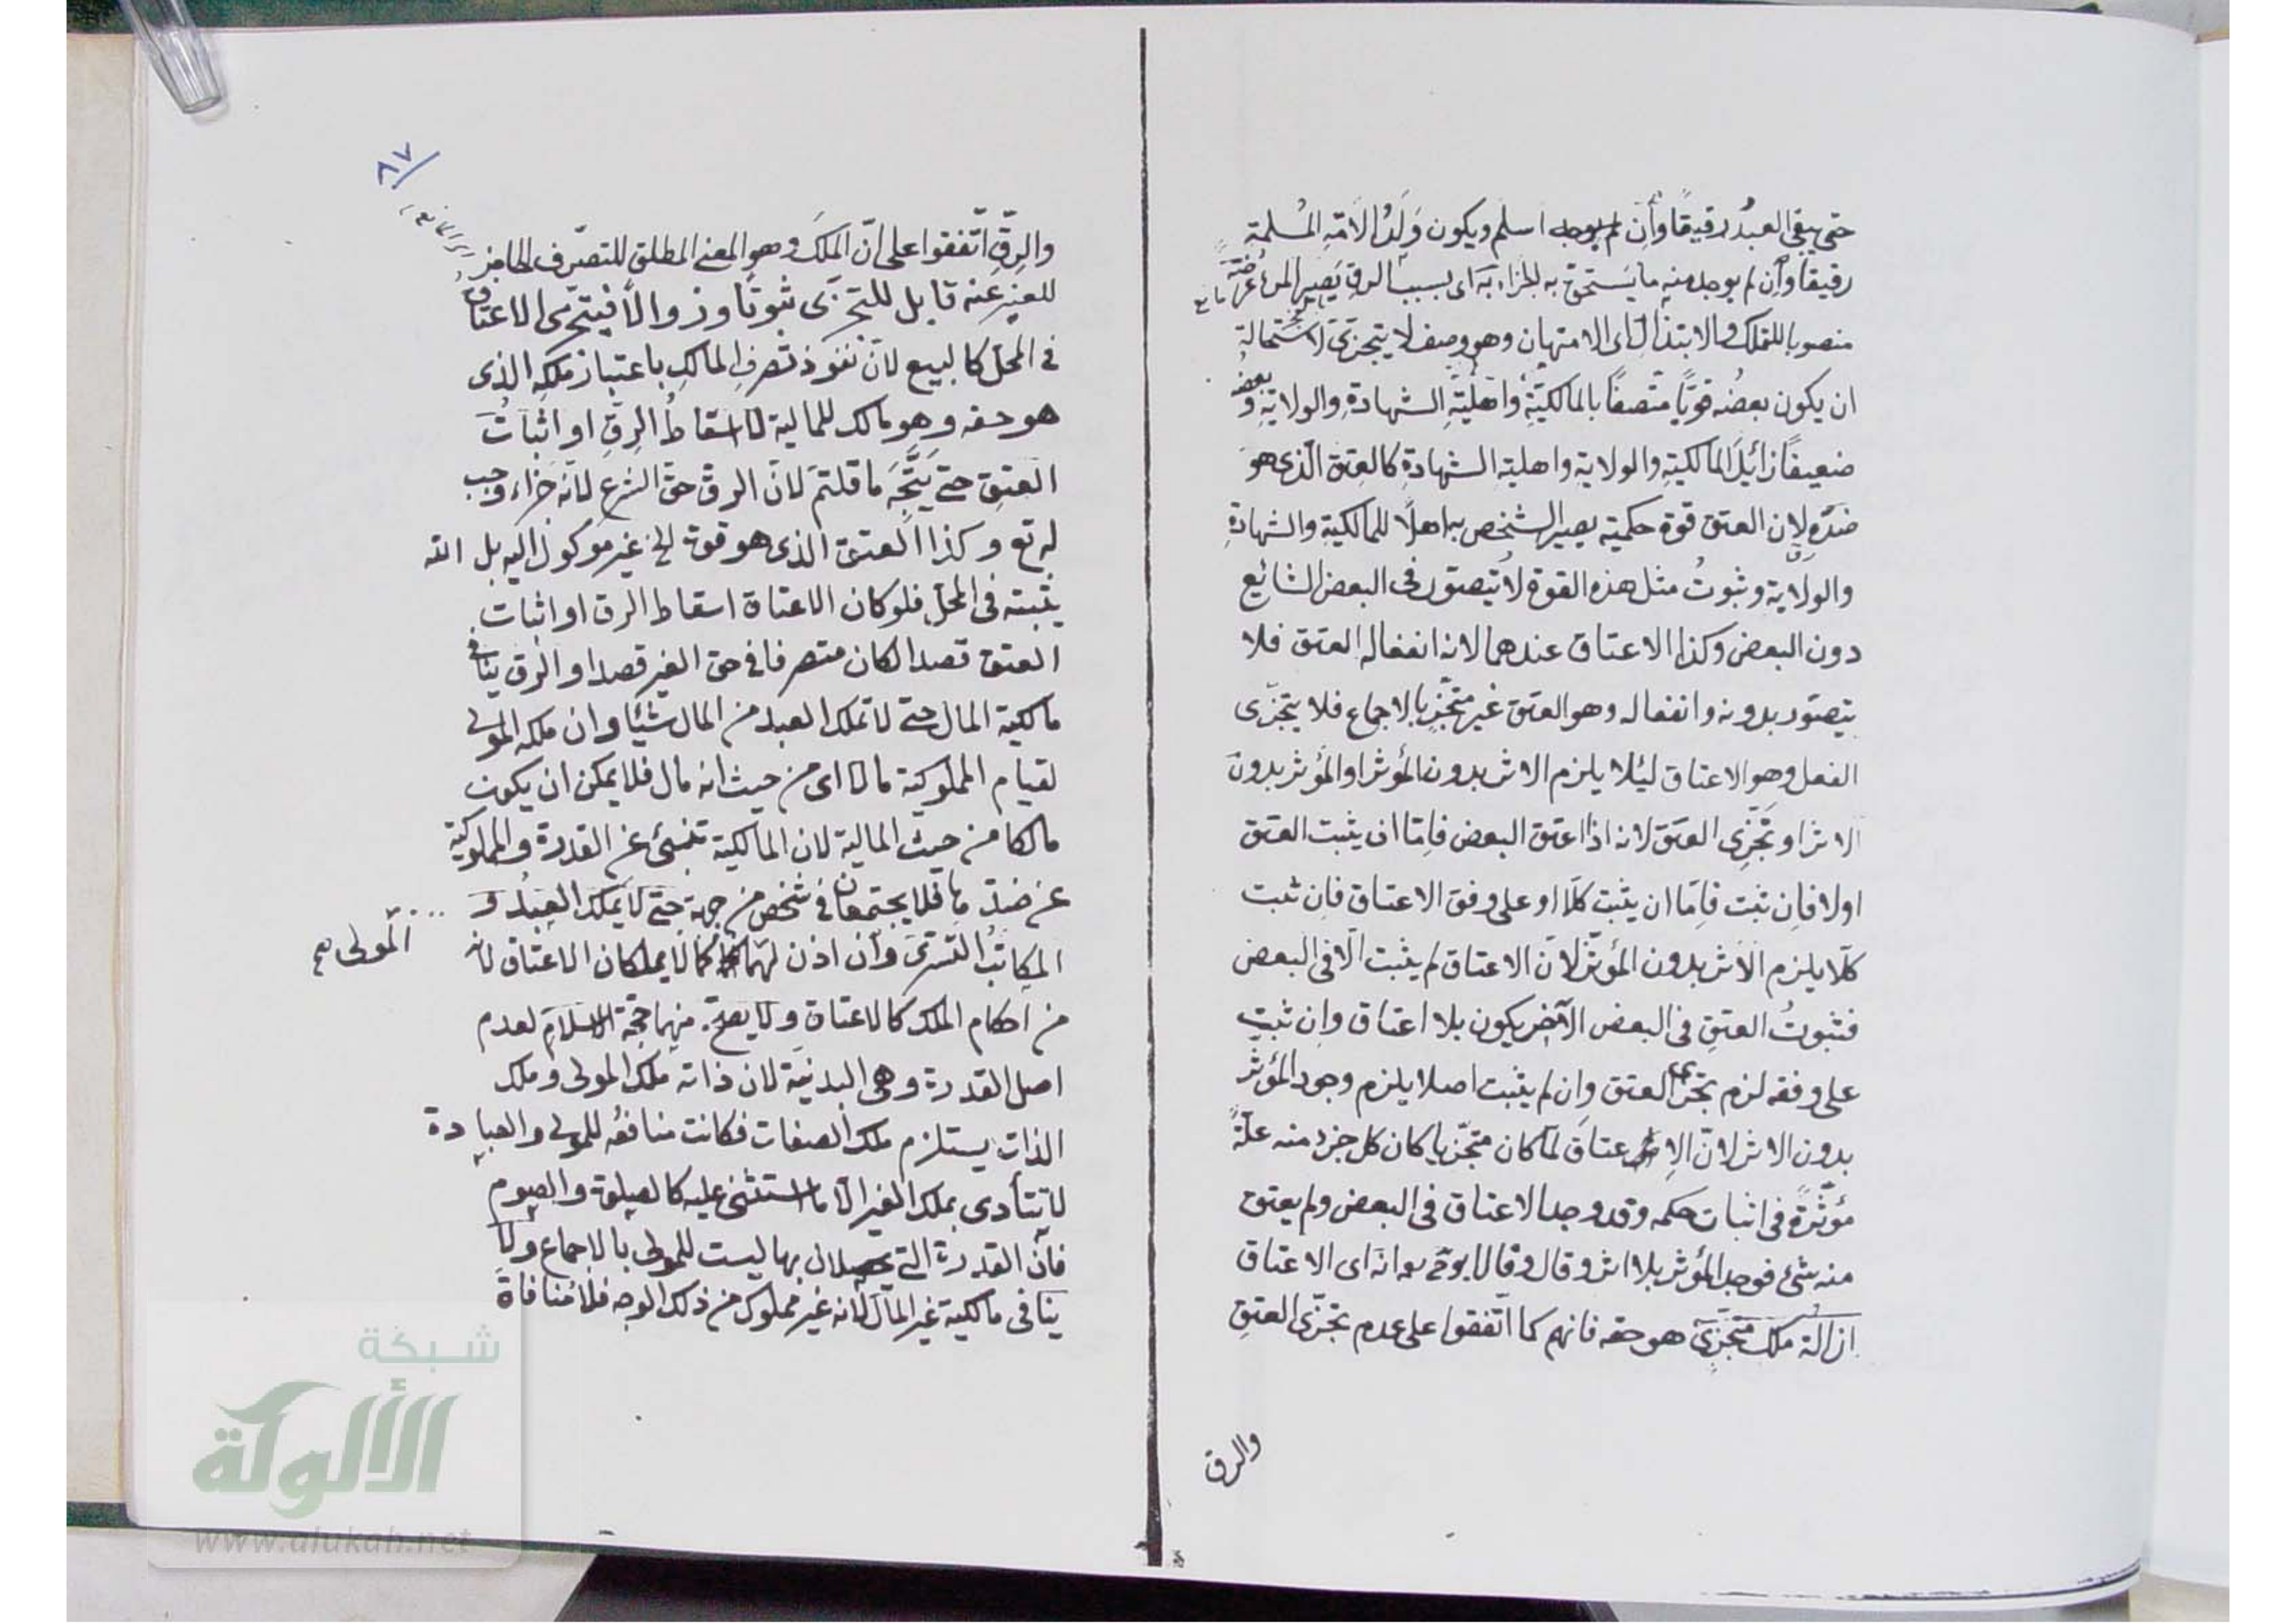 حتى يبقى العبدُ رقيقًا وأن اسلم ويكون وَلَدُ الاَمَةِ المُسلمة
رقيقًا وأن لم يوجد منه ما يستحق به الجزاء به اى بسبب الرق يصير المرء عرضة
منصوبا للتملك والابتذال اى الامتهان وهو وصف لا يتجزى لاستحالة
ان يكون بعضُه قويًّا متّصفًا بالمالكيّةِ وأهليّةِ الشهادةِ والولايةِ وبعضُه
ضعيفًا زائلَ المالكية والولاية واهلية الشهادة كالعتق الّذى هو
ضدّه لان العتق قوة حكمية يصير الشخص به اهلًا للمالكية والشهادةِ
والولاية وثبوتُ مثل هذه القوة لا يُتصوّر فى البعض الشائع
دون البعض وكذا الاعتاق عندهما لانه انفعاله العتق فلا
يتصوّر بدونه وانفعاله وهو العتق غير متجزٍّ بالاجماع فلا يتجزّى
الفعل وهو الاعتاق ليئلا يلزم الاثر بدون المؤثر او المؤثر بدون
الاثر او تَجَزّى العتق لانه اذا اعتق البعض فاِمّا ان يثبت العتق
اولا فاِن ثبت فاِمّا ان يثبت كلّا او على وفق الاعتاق فاِن ثبت
كلّا يلزم الاَثر بدون المؤثر لانّ الاعتاق لم يثبت الّا فى البعض
فثبوتُ العتقِ فى البعض الآخر يكون بلا اعتاق وان ثبت
على وفقه لزم تجزى العتق وان لم يثبت اصلا يلزم وجود المؤثر
بدون الاثر لانّ الاعتاق لمّا كان متجزّيا كان كل جزء منه علّةً
مؤثّرةً فى اثبات حكمه وقد وجد الاعتاق فى البعض ولم يعتق
منه شئ فوجد المؤثر بلا اثر وقال انّه اى الاعتاق
ازالة ملك متجزّى هو حقه فانهم كما اتّفقوا على عدم تجزّى العتق
والرق
٨٧
والرِقّ اتّفقوا على انّ الملكَ وهو المعنى المطلق للتصرّف الحاجز
للغير عنه قابل للتجزّى ثبوتًا وزوالًا فيتجزّى الاعتاق
فى المحل كالبيع لانّ نفوذ تصرفِ المالكِ باعتبار ملكهِ الذى
هو حقه وهو مالك للمالية لا اسقاطُ الرِقّ او اثباتُ
العتق حتى يَتَّجِهَ ما قلتم لانّ الرقّ حقّ الشرع لانّه جزاء وجب
له تع وكذا العتق الذى هو قوة الخ غير موكول اليه بل الله
يثبته فى المحل فلو كان الاعتاق اسقاط الرق او اثبات
العتق قصدا لكان متصرفا فى حق الغير قصدا والرق ينافى
مالكية المال حتى لا يملك العبد من المال شيئا وان ملكه المولى
لقيام المملوكية مالا اى من حيث انه مال فلا يمكن ان يكون
مالكا من حيث المالية لان المالكية تنبئ عن القدرة والمملوكية
عن ضدّها فلا يجتمعان فى شخص من جهة حتى لا يملك العبد و
المكاتبُ التسرّى وأن اذن لهما كما لا يملكان الاعتاق لانه
المولى صح
من احكام الملك كالاعتاق ولا يصحّ منهما حجّة الاسلام لعدم
اصل القدرة وهى البدنيّة لان ذاته ملك المولى وملك
الذات يستلزم ملك الصفات فكانت منافعُه للمولى والعبادة
لا يتأدى بملك الغير الّا ما استثنى عليه كالصلوة والصوم
فانّ القدرة التى يحصلان بها ليست للمولى بالاجماع ولا
ينافى مالكية غير المال لانه غير مملوك من ذلك الوجه فلا منافاة
شبكة
الألوكة
www.alukah.net